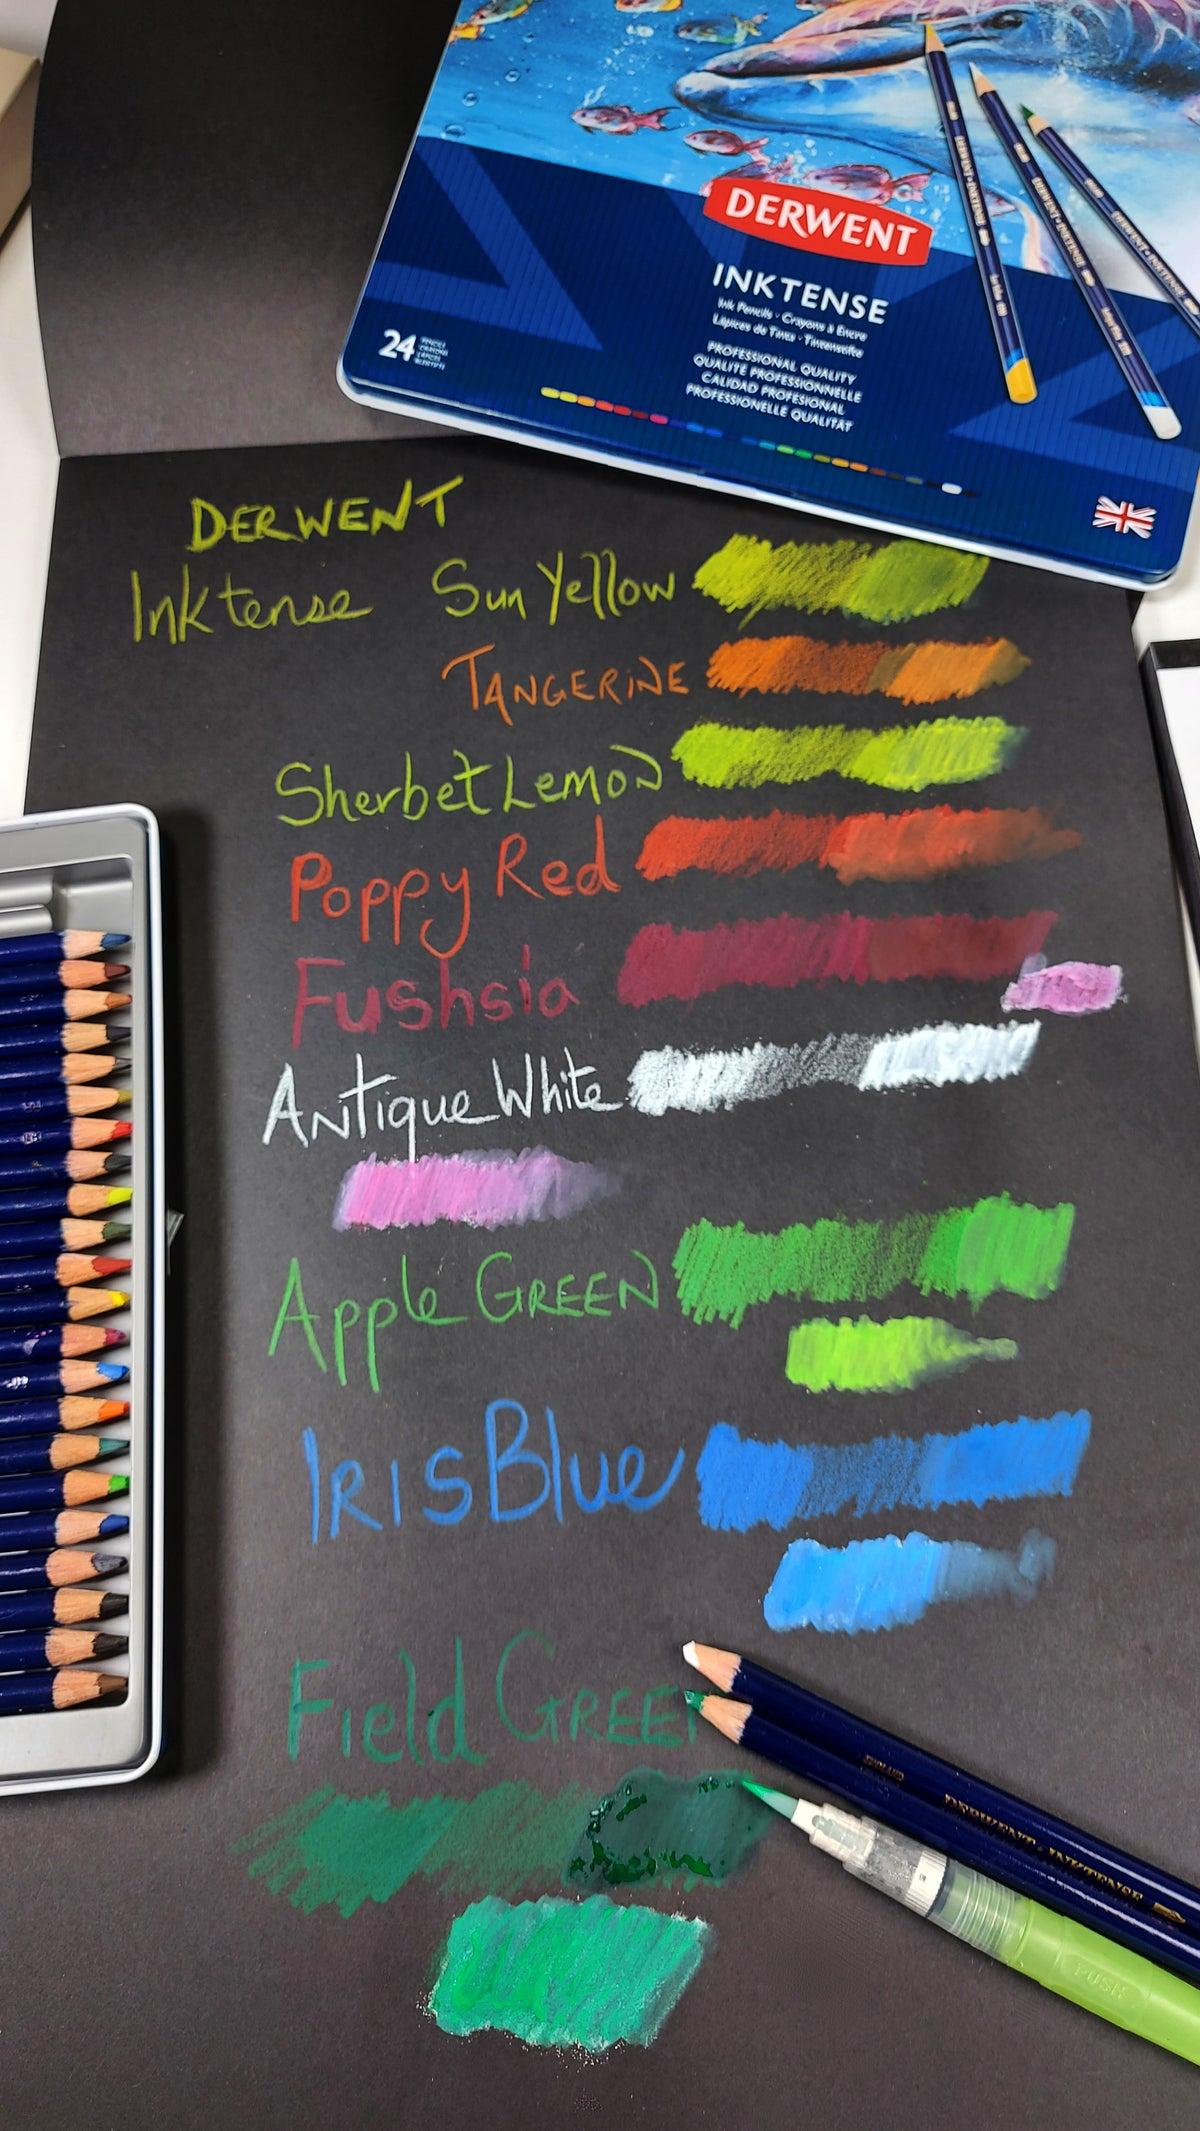 DERWENT
INKTENSE
Ink Pencils · Crayons à Encre
Lápices de Tinta · Tintenstifte
PROFESSIONAL QUALITY
QUALITÉ PROFESSIONNELLE
CALIDAD PROFESIONAL
PROFESSIONELLE QUALITÄT
24
DERWENT · INKTENSE
DERWENT · INKTENSE
DERWENT · INKTENSE
DERWENT
Inktense Sun Yellow
TANGERINE
Sherbet Lemon
Poppy Red
Fushsia
Antique White
Apple GREEN
IRIS Blue
Field GREEN
ENGLAND
DERWENT · INKTENSE
PUSH